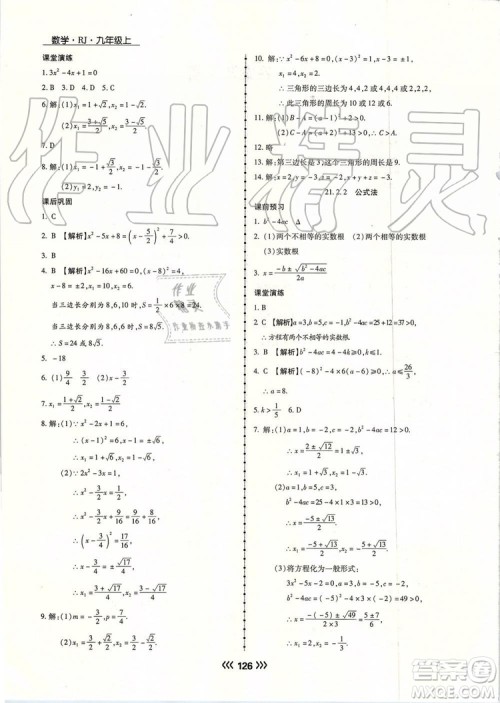 数学·RJ·九年级上
课堂演练
1. 3x²-4x+1=0
2. B  3. D  4. D  5. C
6. 解:(1)x₁=1+√2, x₂=1-√2.
(2)x₁=(3+√5)/2, x₂=(3-√5)/2.
7. D
8. 解:(1)x₁=1+√6/2, x₂=1-√6/2.
(2)y₁=2, y₂=-1/3.
课后巩固
1. D
2. B 【解析】x²-5x+8=(x-5/2)²+7/4>0.
3. B
4. D 【解析】x²-16x+60=0, (x-8)²=4,
∴x₁=10, x₂=6.
当三边长分别为8,6,10时, S=1/2×6×8=24;
当三边长分别为8,6,6时,
∴S=24或8√5.
5. -18
6. (1)9/16  3/4  (2)1/9  1/3
7. x₁=(1+√2)/3, x₂=(1-√2)/3.
8. 解:(1)x²-2x+1=6,
∴(x-1)²=6, ∴x-1=±√6,
∴x₁=1+√6, x₂=1-√6.
(2)2x²-3x=1,
∴x²-3/2x=1/2,
∴x²-3/2x+9/16=1/2+9/16,
∴(x-3/4)²=17/16,
∴x-3/4=±√17/4,
∴x₁=(3+√17)/4, x₂=(3-√17)/4.
9. 解:(1)m=-3/2, n=7/4.
(2)x₁=3/2+√2, x₂=3/2-√2.
10. 解:∵x²-6x+8=0, ∴(x-3)²=1,
∴x₁=4, x₂=2.
∴三角形的三边长为4,4,2或4,4,4或2,2,2,
∴此三角形的周长为10或12或6.
11. 解:∵B-A=(a-1)²+2>0, ∴B>A.
12. 略
13. 解:第三边长是7,这个三角形的周长是17.
21.2.2 公式法
课前预习
1. b²-4ac  Δ
2. (1)两个不相等的实数根
(2)两个相等的实数根
(3)没有实数根
3. x=(-b±√(b²-4ac))/2a
课堂演练
1. B
2. C 【解析】a=2, b=5, c=
∴方程有两个不相等的实数根.
3. B 【解析】b²-4ac=
4. C
∴a=8.
5. k>1/5  6. D
7. 解:(1)a=1, b=-1, c=-2,
b²-4ac=(-1)²-4×1×(-2)=9>0,
∴x=
∴x₁=2, x₂=-1.
(2)a=3, b=5, c=1,
b²-4ac=5²-4×3×1=13>0,
∴x=(-5±√13)/(2×3)=(-5±√13)/6.
∴x₁=(-5+√13)/6, x₂=(-5-√13)/6.
(3)将方程化为一般形式:
3x²-5x-2=0, a=3, b=-5, c=-2,
b²-4ac=(-5)²-4×3×(-2)=49>0,
∴x=(-(-5)±√49)/(2×3)=(5±7)/6,
126